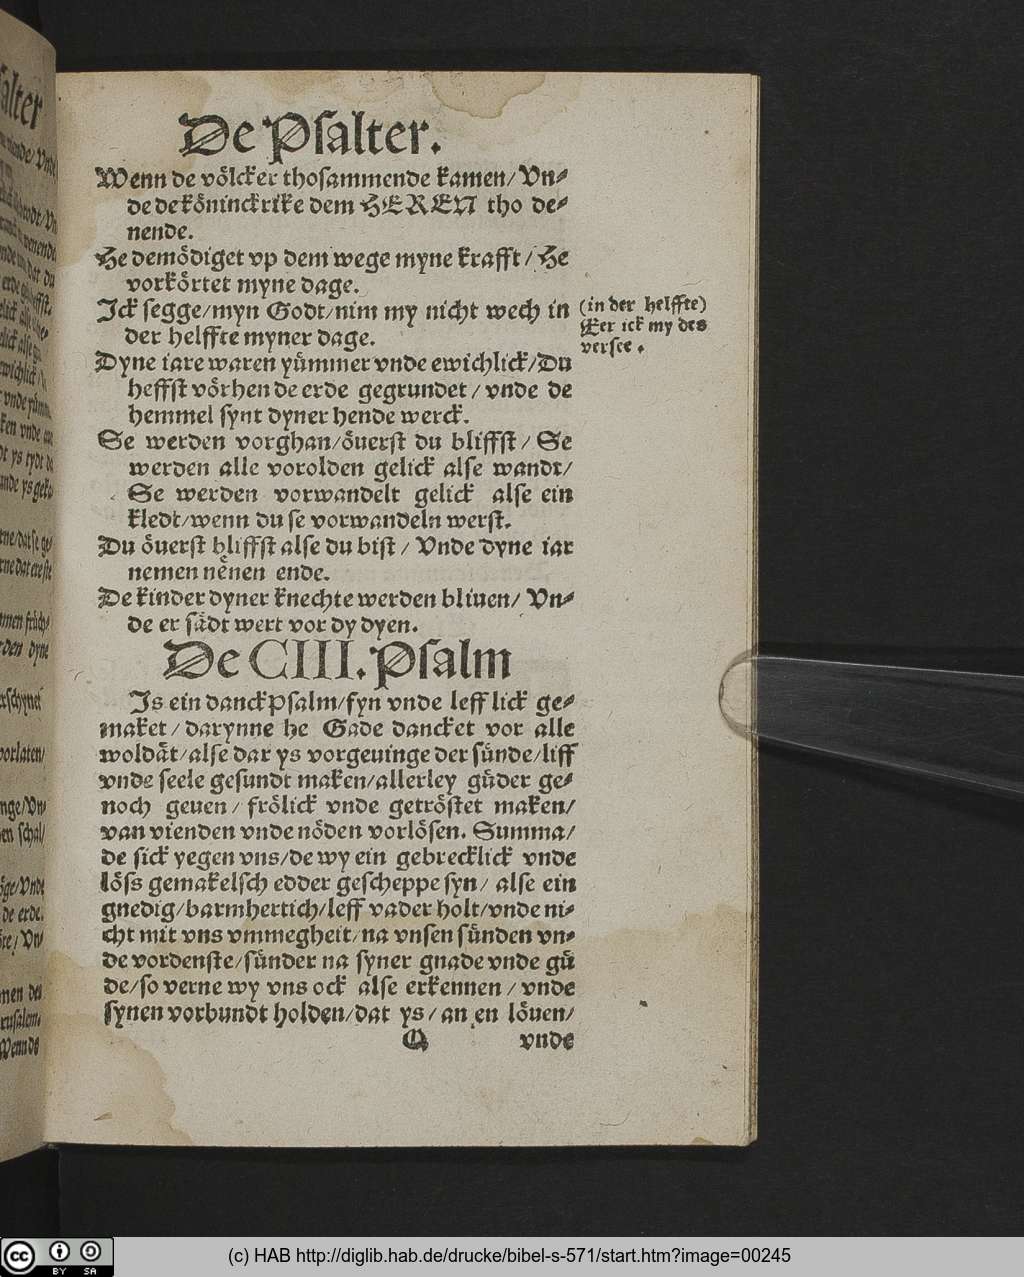 De Psalter.
Wenn de vȫlcker thosammende kamen/ Vn⸗
de de kȫninckrike dem HEREN tho de⸗
nende.
He demȫdiget vp dem wege myne krafft/ He
vorkȫrtet myne dage.
Ick segge/myn Godt/nim my nicht wech in
der helffte myner dage.
(in der helffte)
Eer ick my des
versee.
Dyne iare waren yümmer vnde ewichlick/Du
heffst vörhen de erde gegrundet/ vnde de
hemmel synt dyner hende werck.
Se werden vorghan/öuerst du bliffst/ Se
werden alle vorolden gelick alse wandt/
Se werden vorwandelt gelick alse ein
kledt/wenn du se vorwandeln werst.
Du öuerst bliffst alse du bist/ Vnde dyne iar
nemen nēnen ende.
De kinder dyner knechte werden bliuen/ Vn⸗
de er sädt wert vor dy dyen.
De CIII. Psalm
Is ein danckPsalm/fyn vnde lefflick ge⸗
maket/ darynne he Gade dancket vor alle
woldät/alse dar ys vorgeuinge der sünde/liff
vnde seele gesundt maken/allerley güder ge⸗
noch geuen/ frölick vnde getröstet maken/
van vienden vnde nöden vorlösen. Summa/
de sick yegen vns/de wy ein gebrecklick vnde
löss gemakelsch edder gescheppe syn/ alse ein
gnedig/barmhertich/leff vader holt/vnde ni⸗
cht mit vns vmmegheit/na vnsen sünden vn⸗
de vordenste/sünder na syner gnade vnde gü
de/so verne wy vns ock alse erkennen/ vnde
synen vorbundt holden/dat ys/ an en löuen/
Q vnde
salter
(c) HAB http://diglib.hab.de/drucke/bibel-s-571/start.htm?image=00245
cc BY SA